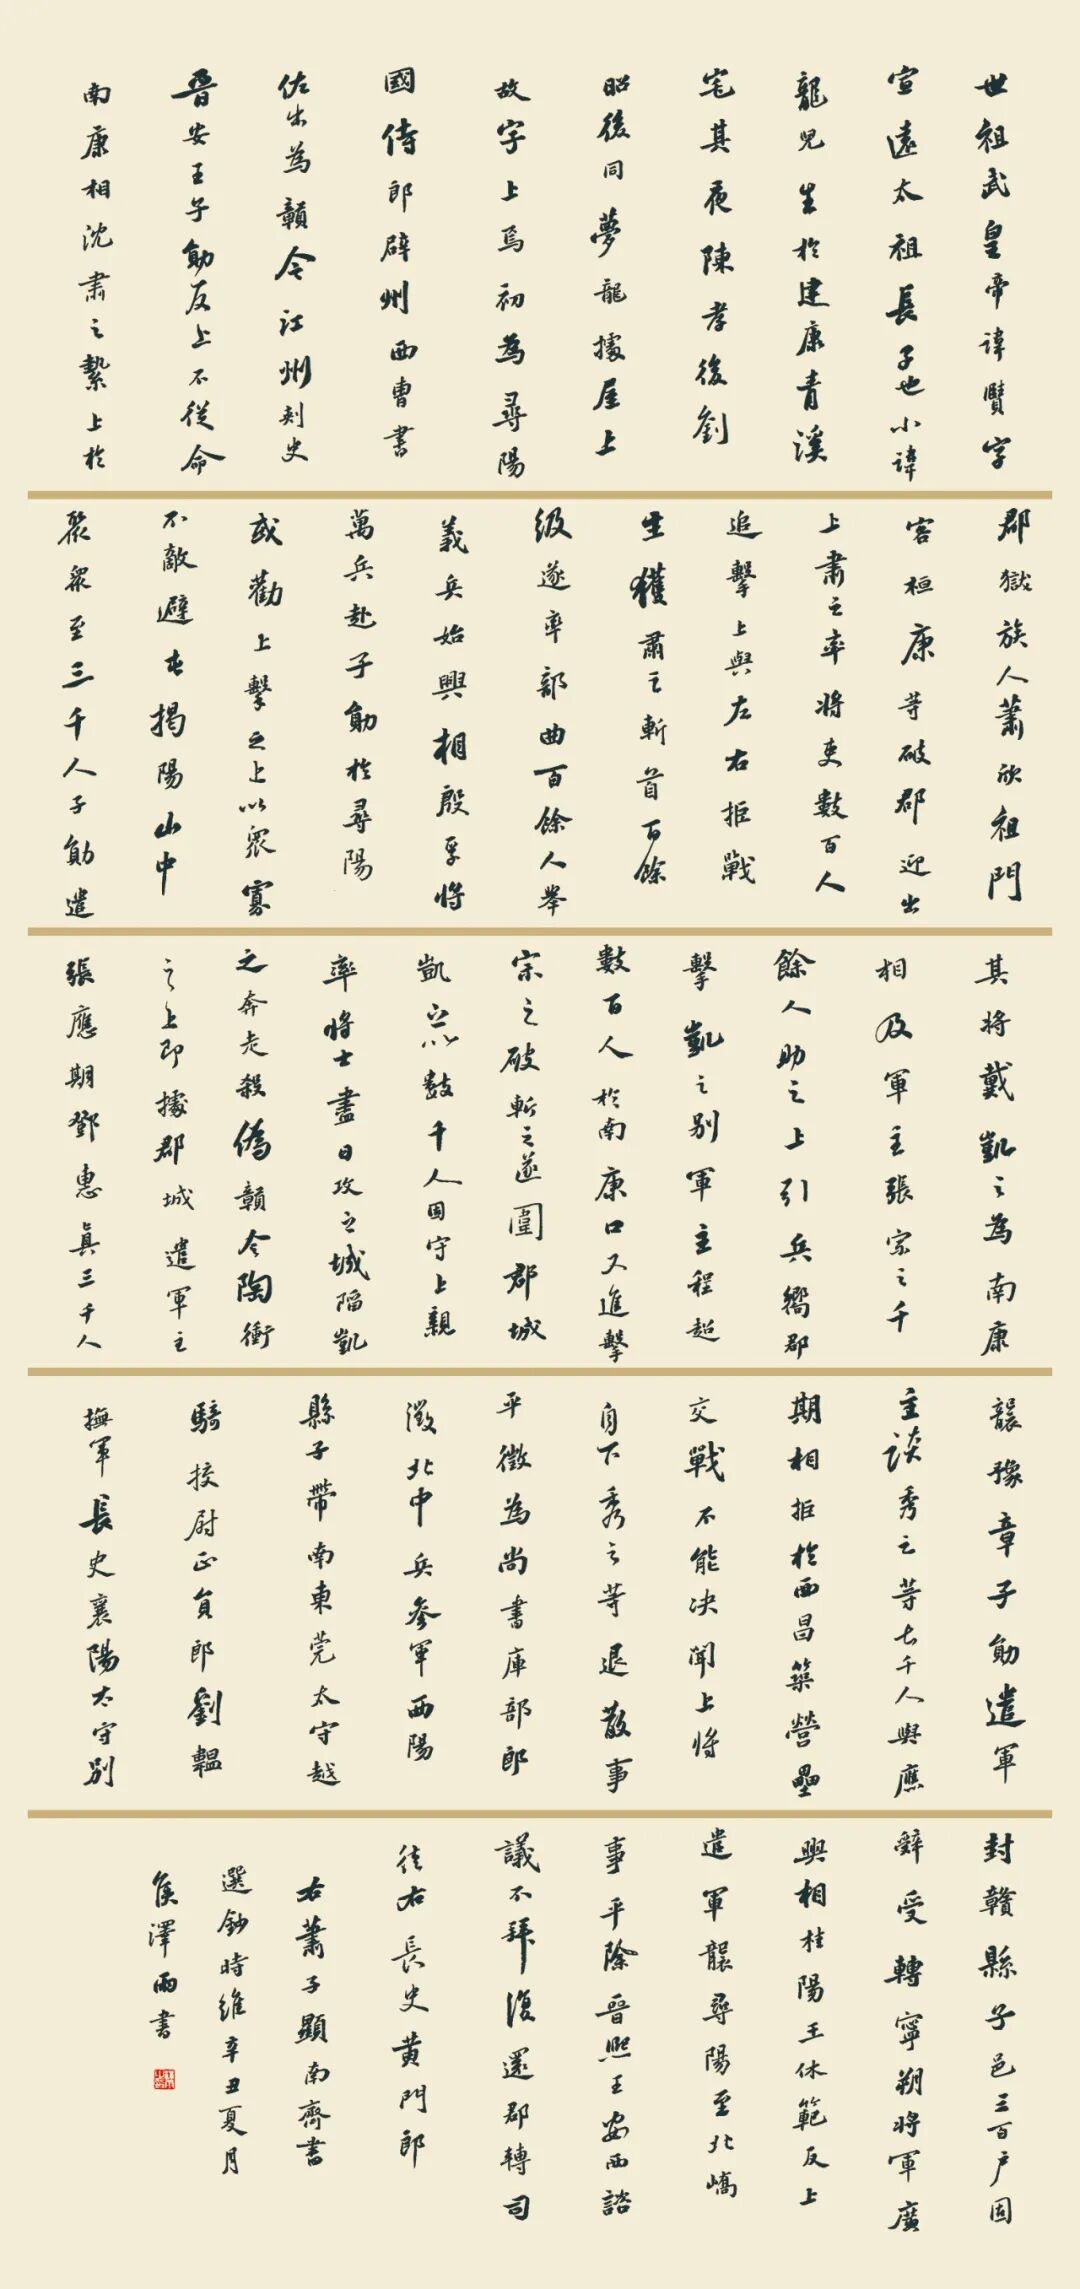 世祖武皇帝諱賾字
宣遠太祖長子也小諱
龍兒生於建康青溪
宅其夜陳孝後劉
昭後同夢龍據屋上
故字上焉初為尋陽
國侍郎辟州西曹書
佐出為贛令江州刺史
晉安王子勛反上不從命
南康相沈肅之縶上於
郡獄族人蕭欣祖門
客桓康等破郡迎出
上肅之率將吏數百人
追擊上與左右拒戰
生獲肅之斬首百餘
級遂率部曲百餘人舉
義兵始興相殷孚將
萬兵赴子勛於尋陽
或勸上擊之上以眾寡
不敵避屯揭陽山中
聚眾至三千人子勛遣
其將戴凱之為南康
相及軍主張宗之千
餘人助之上引兵嚮郡
擊凱之別軍主程超
數百人於南康口又進擊
宗之破斬之遂圍郡城
凱之以數千人固守上親
率將士盡日攻之城陷凱
之奔走殺偽贛令陶衝
之上即據郡城遣軍主
張應期鄧惠真三千人
襲豫章子勛遣軍
主談秀之等七千人與應
期相拒於西昌築營壘
交戰不能決聞上將
自下秀之等退散事
平徵為尚書庫部郎
徵北中兵參軍西陽
縣子帶南東莞太守越
騎校尉正員郎劉韞
撫軍長史襄陽太守別
封贛縣子邑三百戶固
辭受轉寧朔將軍廣
興相桂陽王休範反上
遣軍襲尋陽至北嶠
事平除晉熙王安西諮
議不拜復還郡轉司
徒右長史黃門郎
右蕭子顯南齊書
選鈔時維辛丑夏月
侯澤雨書